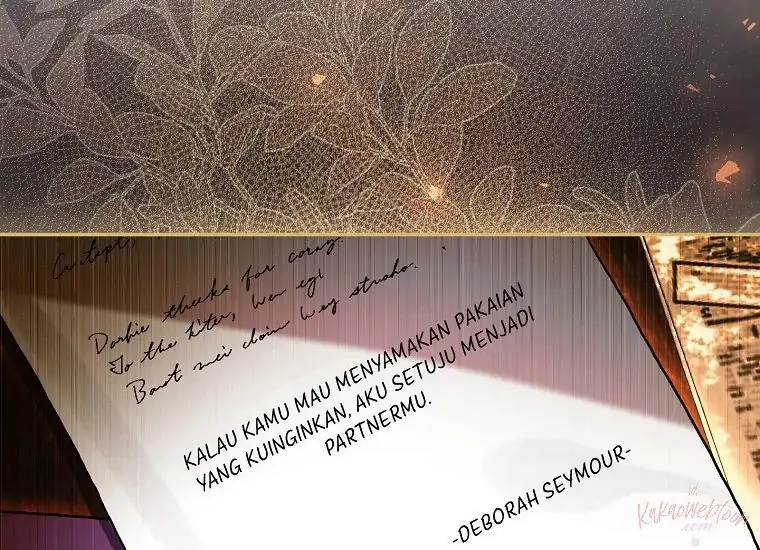 Dorhie theeks for coray.
To the kiter, wen egi
Baot mei doin wey struoho.
KALAU KAMU MAU MENYAMAKAN PAKAIAN
YANG KUINGINKAN, AKU SETUJU MENJADI
PARTNERMU.
-DEBORAH SEYMOUR-
id.
KakaoWebtoon
.com